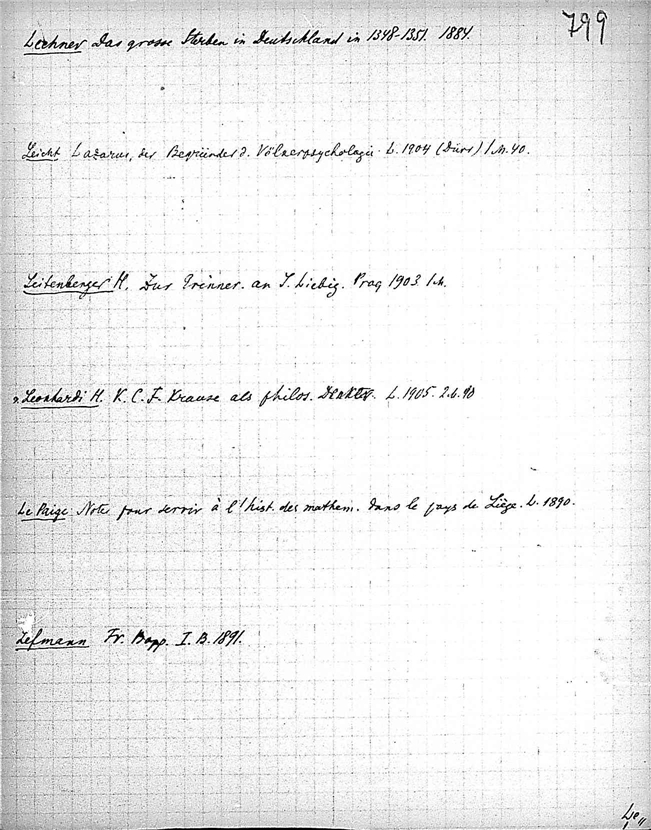 799
Lechner Das grosse Sterben in Deutschland in 1348-1351. 1884.
Leicht Lazarus, der Begründer d. Völkerpsychologie. L. 1904 (Dürr) 1 M. 40.
Leitenberger H. Zur Erinner. an J. Liebig. Prag 1903. 1 M.
v. Leonhardi H. K. C. F. Krause als philos. Denker. L. 1905.
Le Paige Note pour servir à l'hist. des mathem. dans le pays de Liège. L. 1890.
Lefmann Fr. Bopp. I. B. 1891.
Le